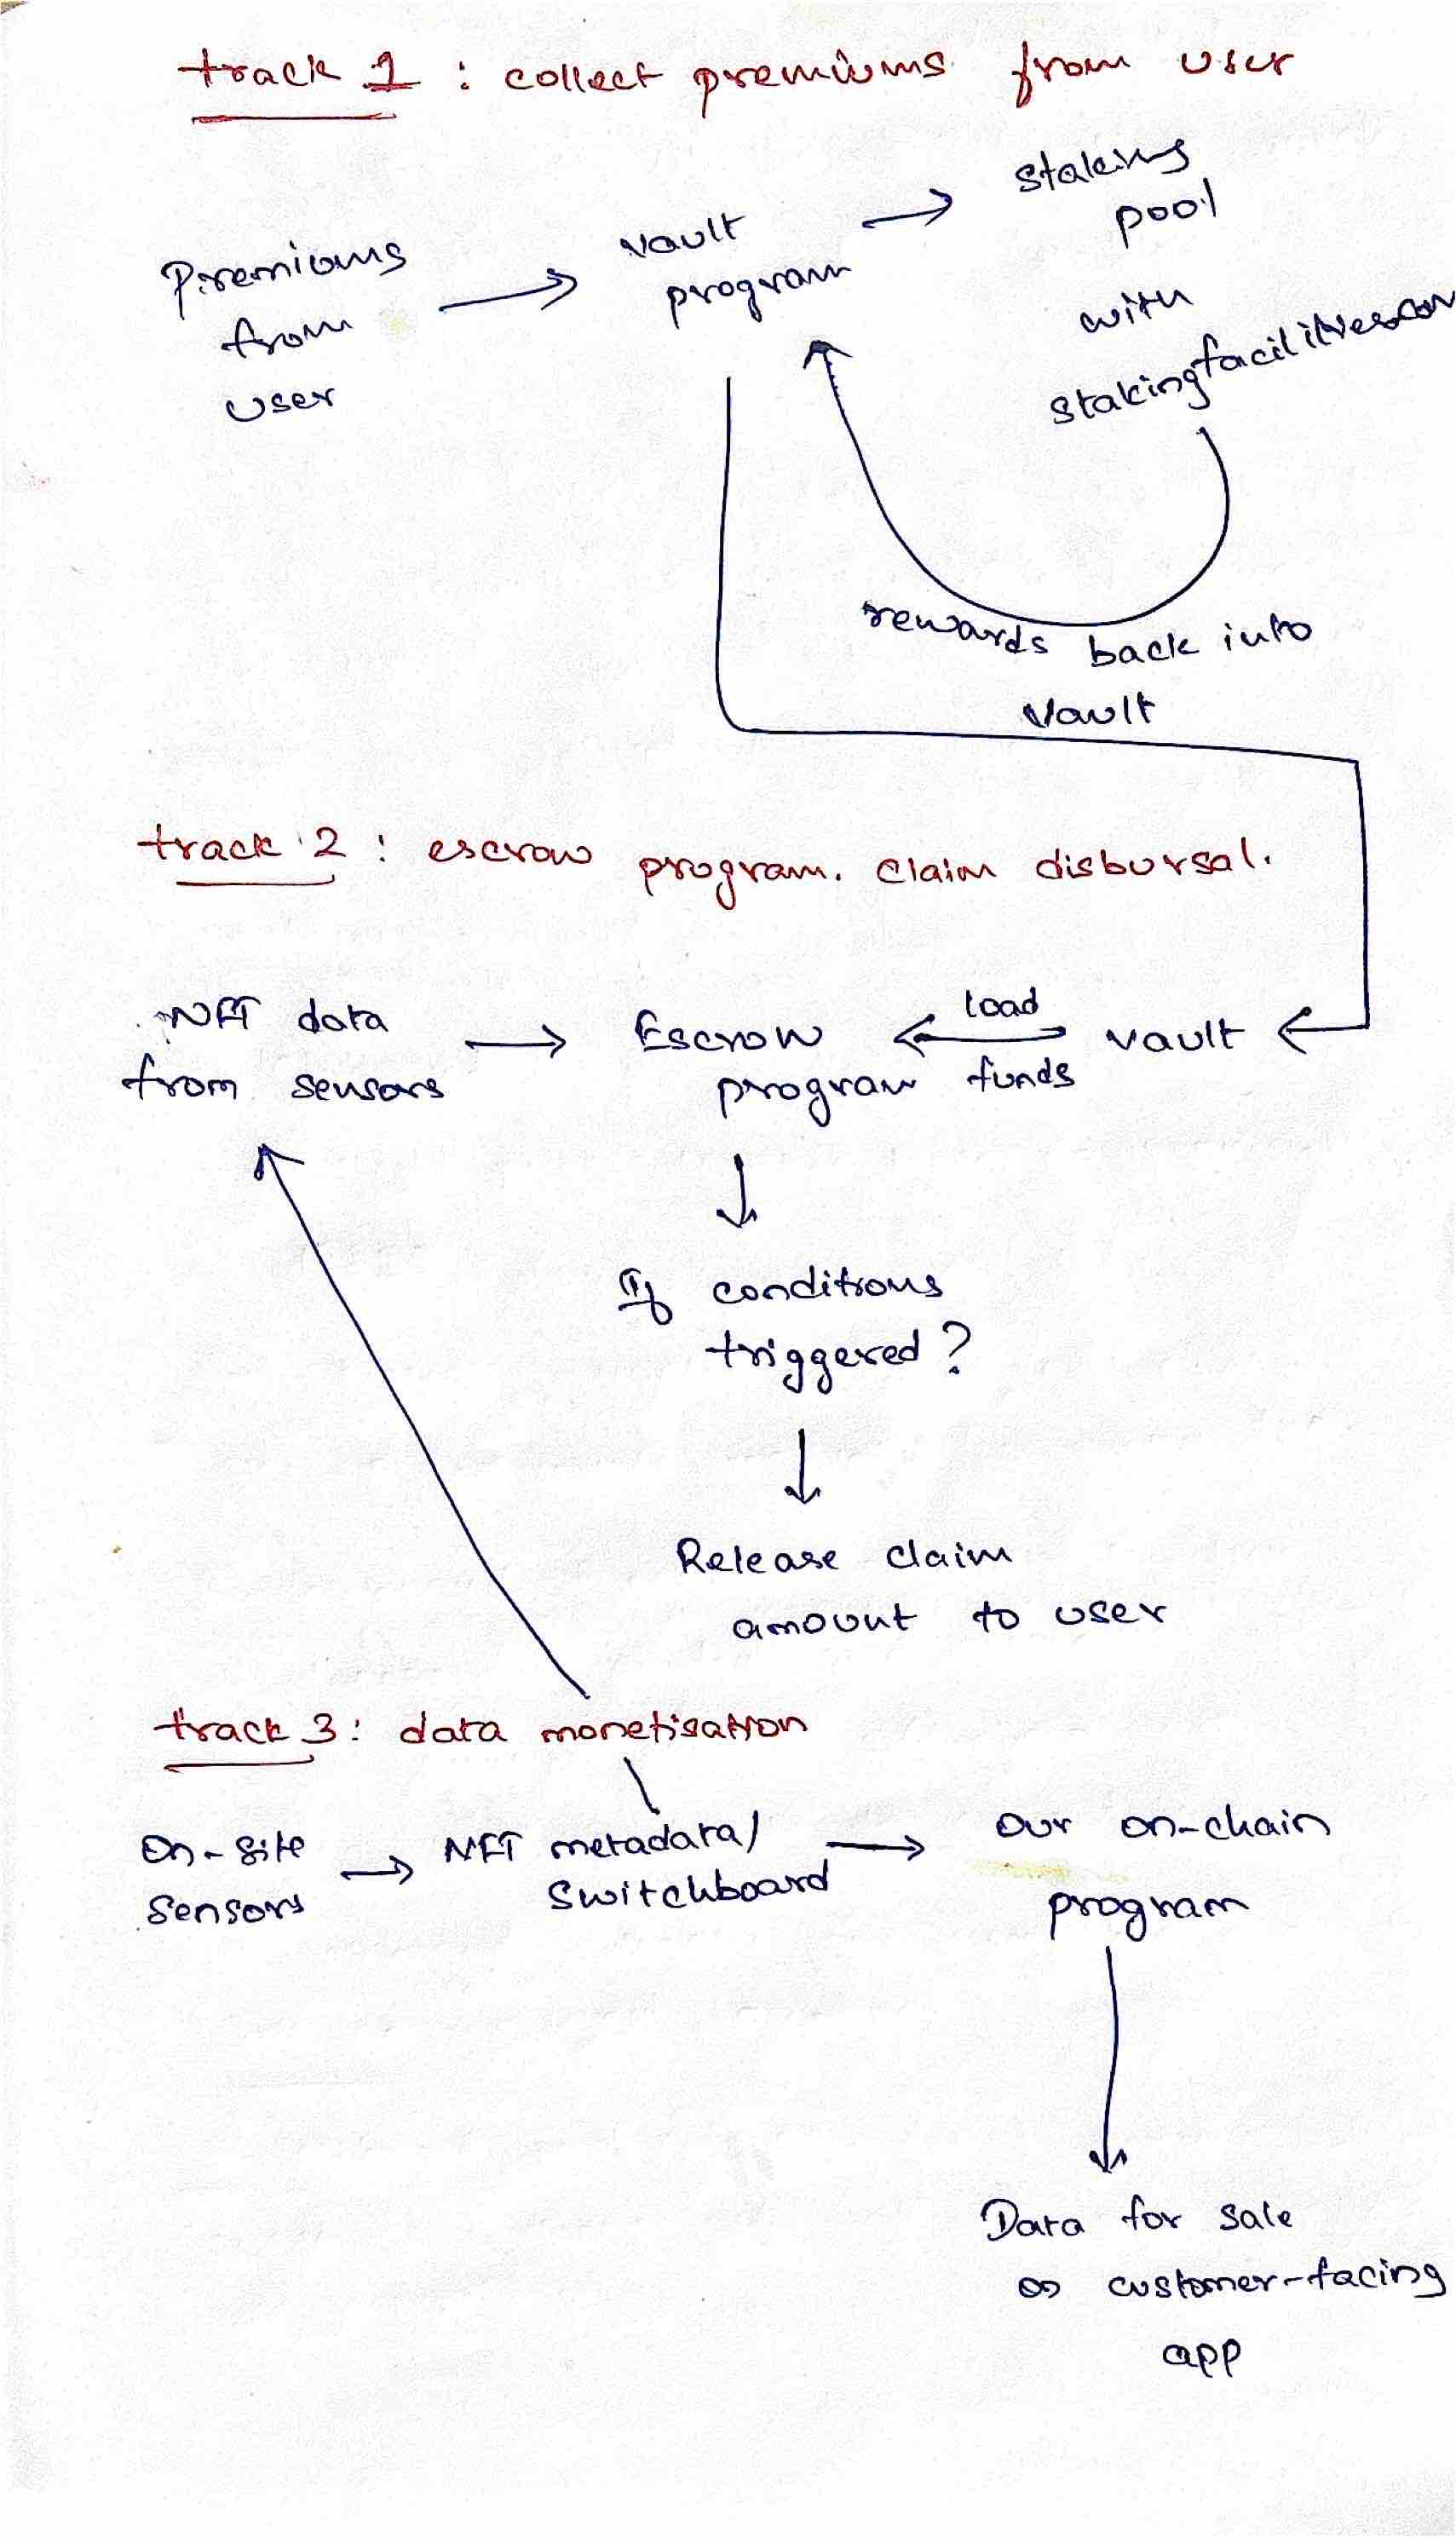 track 1 : collect premiums from user
Premiums
from
user
vault
program
staking
pool
with
stakingfacilities.com
rewards back into
vault
track 2 : escrow program. claim disbursal.
NFT data
from sensors
Escrow
program
load
funds
vault
If conditions
triggered?
Release claim
amount to user
track 3 : data monetisation
On-site
sensors
NFT metadata/
Switchboard
our on-chain
program
Data for sale
on customer-facing
app